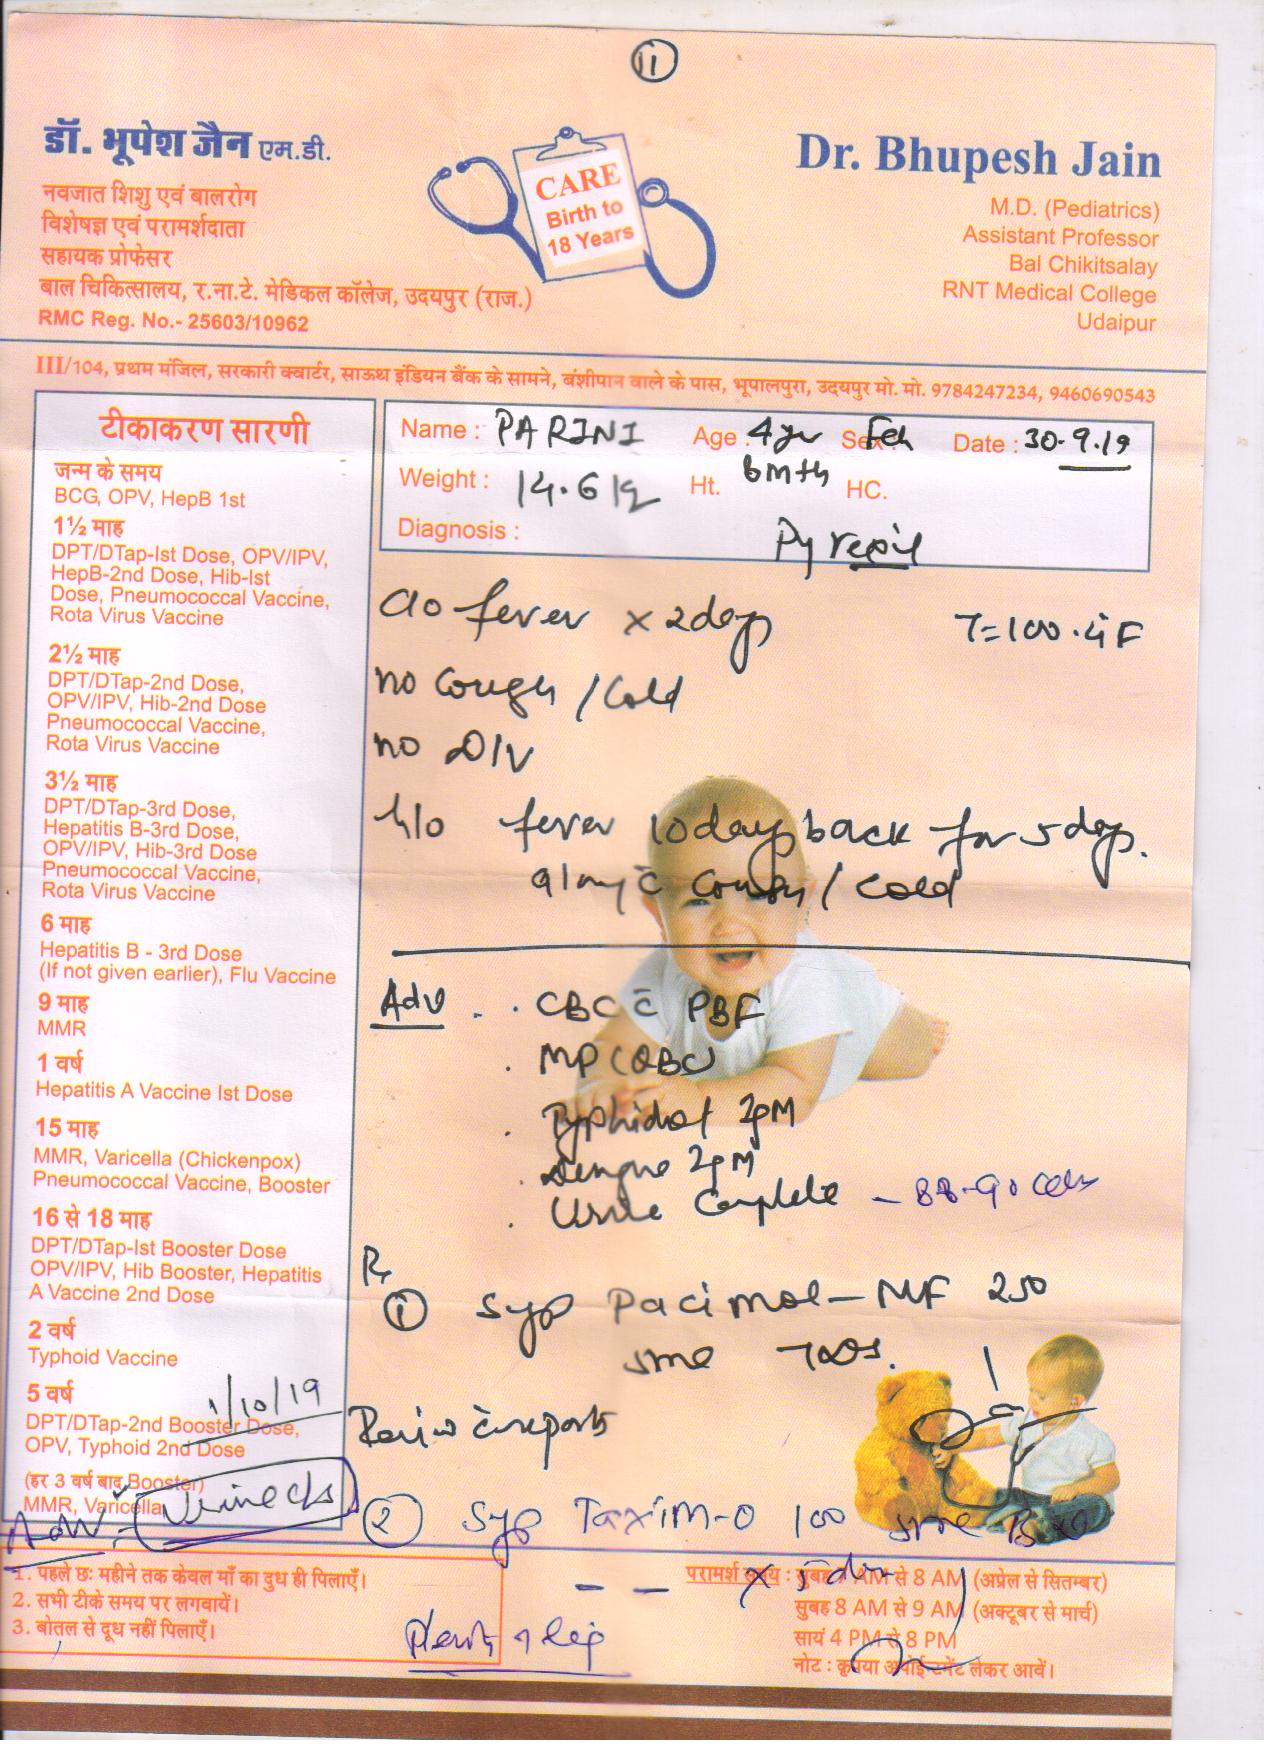 11
डॉ. भूपेश जैन एम.डी.
नवजात शिशु एवं बालरोग
विशेषज्ञ एवं परामर्शदाता
सहायक प्रोफेसर
बाल चिकित्सालय, र.ना.टे. मेडिकल कॉलेज, उदयपुर (राज.)
RMC Reg. No.- 25603/10962
CARE
Birth to
18 Years
Dr. Bhupesh Jain
M.D. (Pediatrics)
Assistant Professor
Bal Chikitsalay
RNT Medical College
Udaipur
III/104, प्रथम मंजिल, सरकारी क्वार्टर, साऊथ इंडियन बैंक के सामने, बंशीपान वाले के पास, भूपालपुरा, उदयपुर मो. मो. 9784247234, 9460690543
टीकाकरण सारणी
जन्म के समय
BCG, OPV, HepB 1st
1½ माह
DPT/DTap-Ist Dose, OPV/IPV,
HepB-2nd Dose, Hib-Ist
Dose, Pneumococcal Vaccine,
Rota Virus Vaccine
2½ माह
DPT/DTap-2nd Dose,
OPV/IPV, Hib-2nd Dose
Pneumococcal Vaccine,
Rota Virus Vaccine
3½ माह
DPT/DTap-3rd Dose,
Hepatitis B-3rd Dose,
OPV/IPV, Hib-3rd Dose
Pneumococcal Vaccine,
Rota Virus Vaccine
6 माह
Hepatitis B - 3rd Dose
(If not given earlier), Flu Vaccine
9 माह
MMR
1 वर्ष
Hepatitis A Vaccine Ist Dose
15 माह
MMR, Varicella (Chickenpox)
Pneumococcal Vaccine, Booster
16 से 18 माह
DPT/DTap-Ist Booster Dose
OPV/IPV, Hib Booster, Hepatitis
A Vaccine 2nd Dose
2 वर्ष
Typhoid Vaccine
5 वर्ष
1/10/19
DPT/DTap-2nd Booster Dose,
OPV, Typhoid 2nd Dose
(हर 3 वर्ष बाद Booster)
MMR, Varicella
Adv Urine c/s
Name : PARINI Age : 4yr Sex : Feh Date : 30-9-19
Weight : 14.6 kg Ht. 6 mth HC.
Diagnosis : Pyrexia
c/o fever x 2 days T=100.4 F
no cough / cold
no D/V
h/o fever 10 days back for 5 days.
along c̄ cough / cold
Adv . CBC c̄ PBF
. MP (QBC)
. Typhidot IgM
Dengue IgM
. Urine Complete - 88-90 cells
Rx
① Syp Pacimol-MF 250
5ml TDS.
Review c̄ reports
② Syp Taxim-O 100 5ml BD
x 5 days
Plenty of liq
1. पहले छः महीने तक केवल माँ का दुध ही पिलाएँ।
2. सभी टीके समय पर लगवायें।
3. बोतल से दूध नहीं पिलाएँ।
परामर्श समय : सुबह 7 AM से 8 AM (अप्रेल से सितम्बर)
सुबह 8 AM से 9 AM (अक्टूबर से मार्च)
सायं 4 PM से 8 PM
नोट : कृपया अपॉइन्टमेंट लेकर आवें।